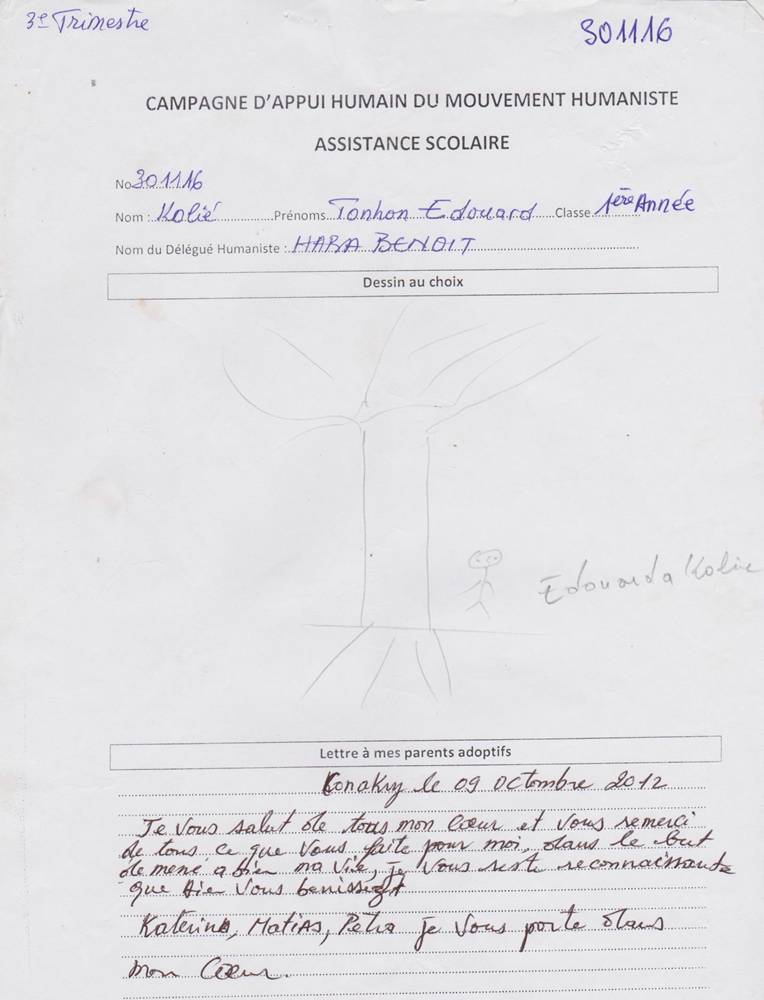 3e Trimestre
301116
CAMPAGNE D'APPUI HUMAIN DU MOUVEMENT HUMANISTE
ASSISTANCE SCOLAIRE
No 301116
Nom : Kolié Prénoms Tonhon Edouard Classe 1ère Année
Nom du Délégué Humaniste : HABA BENOIT
Dessin au choix
Edouarda Kolie
Lettre à mes parents adoptifs
Conakry le 09 octombre 2012
Je vous salut de tous mon Cœur et vous remerci
de tous ce que vous faite pour moi, dans le but
de mené a bien ma vie, je vous reste reconnaissante
que Dieu vous benissent
Katerina, Matias, Petra je vous porte dans
mon Cœur.